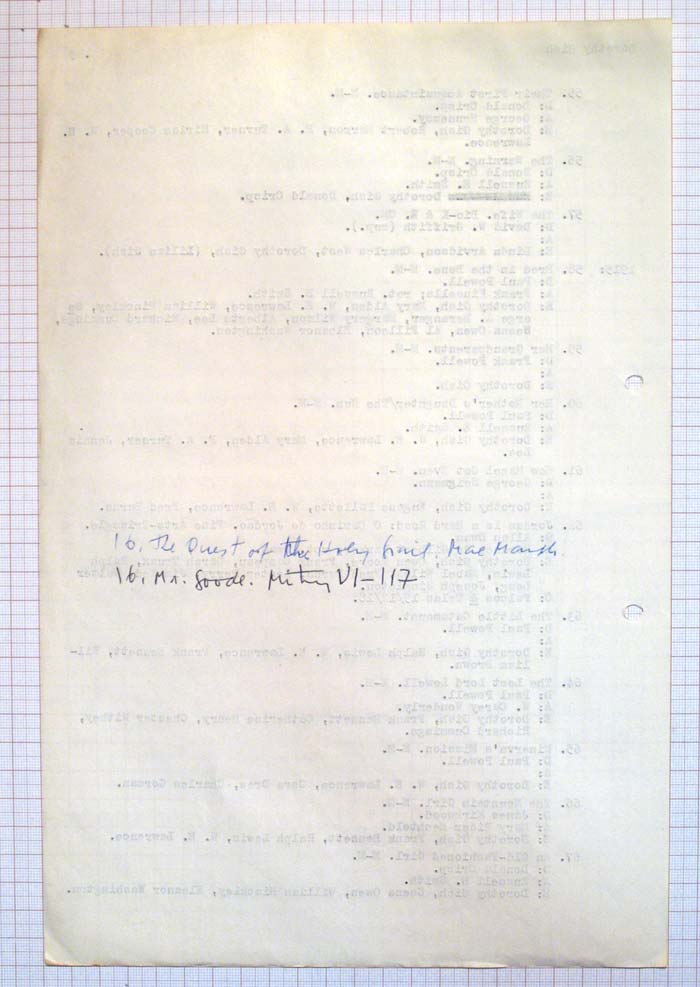 Dorothy Gish
55. Their First Acquaintance. M-M.
D: Donald Crisp.
A: George Hennessy.
E: Dorothy Gish, Robert Harron, F. A. Turner, Miriam Cooper, W. E.
Lawrence.
56. The Warning. M-M.
D: Donald Crisp.
A: Russell E. Smith.
E: Dorothy Gish, Donald Crisp.
57. The Wife. Bio-K & E.
D: David W. Griffith (sup.).
A:
E: Linda Arvidson, Charles West, Dorothy Gish, (Lillian Gish).
1915: 58. Bred in the Bone. M-M.
D: Paul Powell.
A: Frank rot. Russell E. Smith.
E: Dorothy Gish, Mary Alden, W. E. Lawrence, William Hinckley, Ge
orge A. Beranger, Margery Wilson, Alberta Lee, Richard Cummings,
Seena Owen, Al Fillson, Eleanor Washington.
59. Her Grandparents. M-M.
D: Frank Powell.
A:
E: Dorothy Gish.
60. Her Mother's Daughter/The Nun. M-M.
D: Paul Powell.
A: Russell E. Smith.
E: Dorothy Gish, W. E. Lawrence, Mary Alden, F. A. Turner, Jennie
Lee.
61. How Hazel Got Even. M-M.
D: George Seigmann.
A:
E: Dorothy Gish, Eugene Pallette, W. E. Lawrence, Fred Burns.
62. Jordan is a Hard Road; O Caminho do Jordão. Fine Arts-Triangle.
16. The Quest of the Holy Grail. Mae Marsh.
16. Mr. Goode. Mutiny VI-117
63. The Little Catamount. M-M.
D: Paul Powell.
A:
E: Dorothy Gish, Ralph Lewis, W. E. Lawrence, Frank Bennett, Wil-
liam Brown.
64. The Lost Lord Lowell. M-M.
D: Paul Powell.
A: W. Carey Wonderly.
E: Dorothy Gish, Frank Bennett, Catherine Henry, Chester Withey,
Richard Cummings.
65. Minerva's Mission. M-M.
D: Paul Powell.
A:
E: Dorothy Gish, W. E. Lawrence, Cora Drew, Charles Gorman.
66. The Mountain Girl. M-M.
D: James Kirkwood.
A: Mary Rider
E: Dorothy Gish, Frank Bennett, Ralph Lewis, W. E. Lawrence.
67. An Old-Fashioned Girl. M-M.
D: Donald Crisp.
A: Russell E. Smith.
E: Dorothy Gish, Seena Owen, William Hinckley, Eleanor Washington.